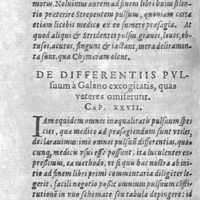 motus. Nolumus autem ad finem libri huius silen-
tio præterire Strepentem pulsum, quoniam certa
etiam licebit medico ex eo sumere præsagia. At
quod aliqui & Stridentes pulsu, graues, leues, ob-
tusos, acutos, fingunt & iactant, mera deliramen-
ta sunt, quæ Chymeram olent.
DE DIFFERENTIIS PVL-
suum à Galeno excogitatis, quas
veteres omiserunt.
CAP. XXVII.
IAm equidem omnes inæqualitatis pulsuum spe-
cies, quæ medico ad præsagiendum sunt vtiles,
declarauimus: imò omnes pulsus differentias, quæ
medicis vsui esse possunt, ita luculenter ex-
pressimus, ea methodo, vt si quis hæc nostra ab ini-
tio ad finem libri primi commentaria diligẽter le-
gerit, facili negotio possit omnium pulsuum cõsti-
tutionẽ in vno schemate seu tabula depingere: id